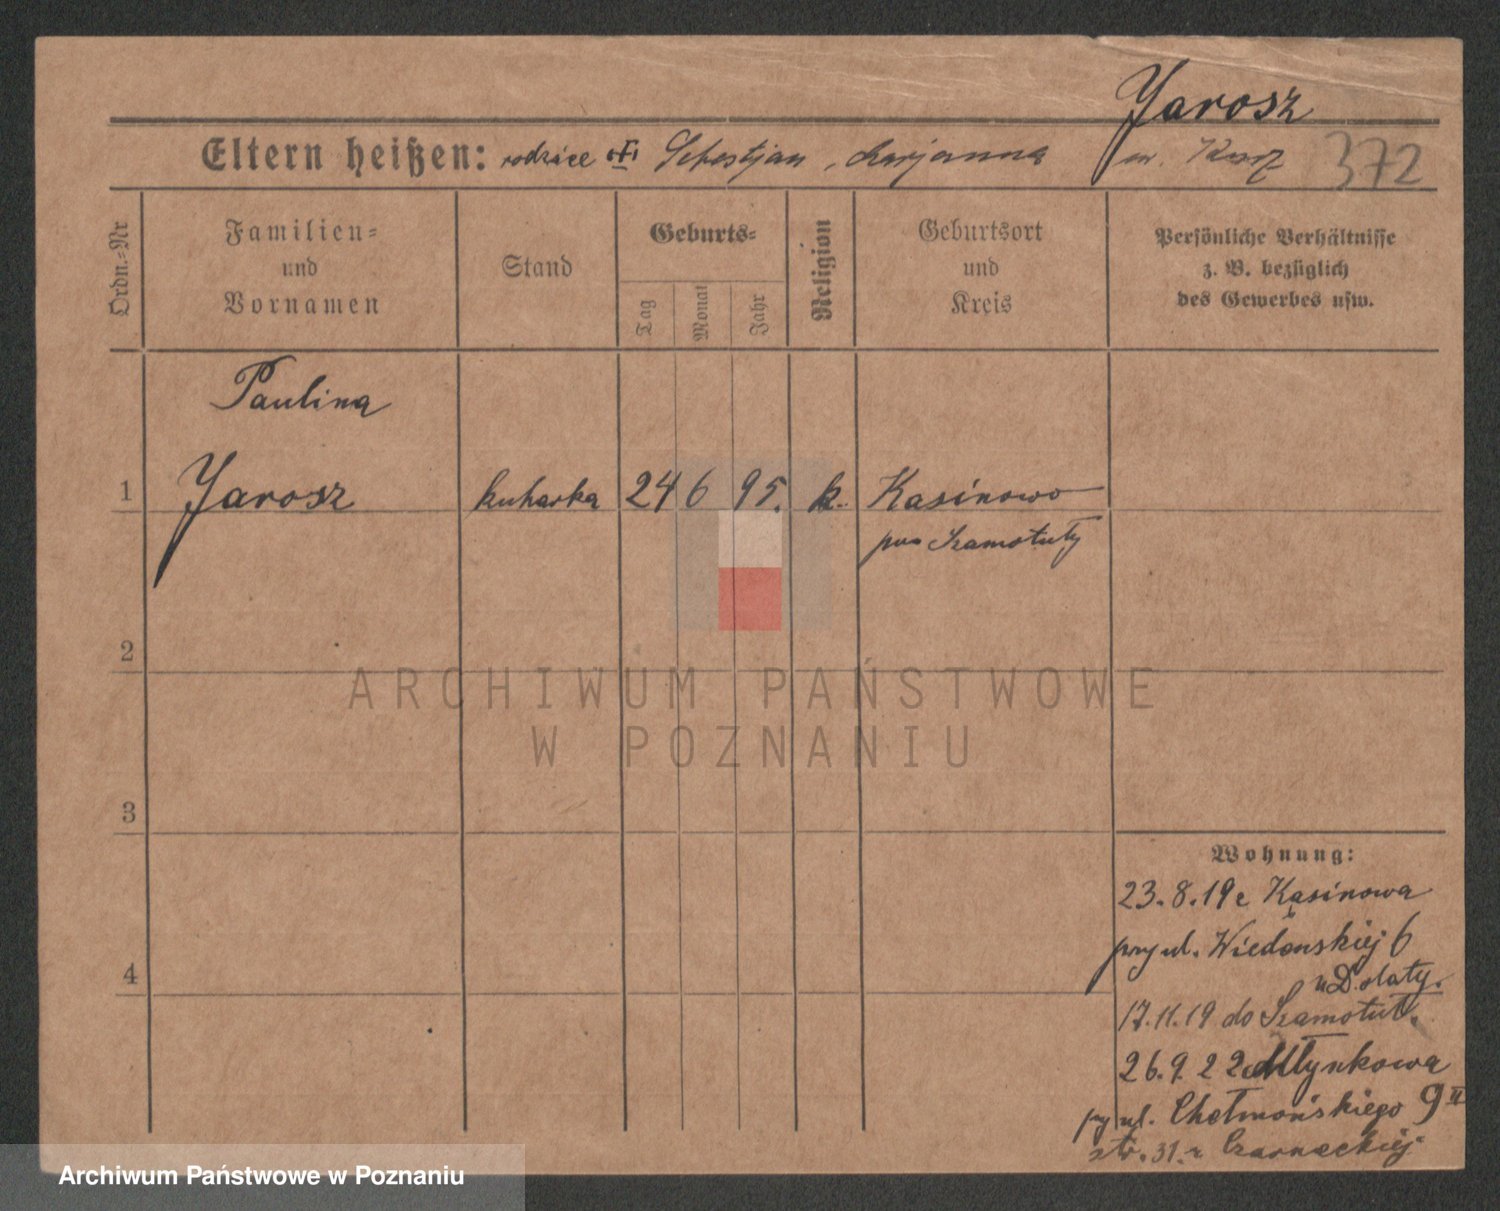 Jarosz
Eltern heißen: rodzice Sebastjan, Marjanna 372
Ordn.-Nr
Familien-
und
Vornamen
Stand
Geburts-
Tag
Monat
Jahr
Religion
Geburtsort
und
Kreis
Persönliche Verhältnisse
z. B. bezüglich
des Gewerbes usw.
Paulina
1 Jarosz kuharka 24 6 95. k. Kasinowo
pow Szamotuły
2
ARCHIWUM PAŃSTWOWE
W POZNANIU
3
Wohnung:
23.8.19 z Kasinowa
przy ul. Wiedenskiej 6
4
17.11.19 do Szamotuł.
26.9.22 z Młynkowa
przy ul. Chełmońskiego 9 II
str. 31. z Czarneckiej
Archiwum Państwowe w Poznaniu